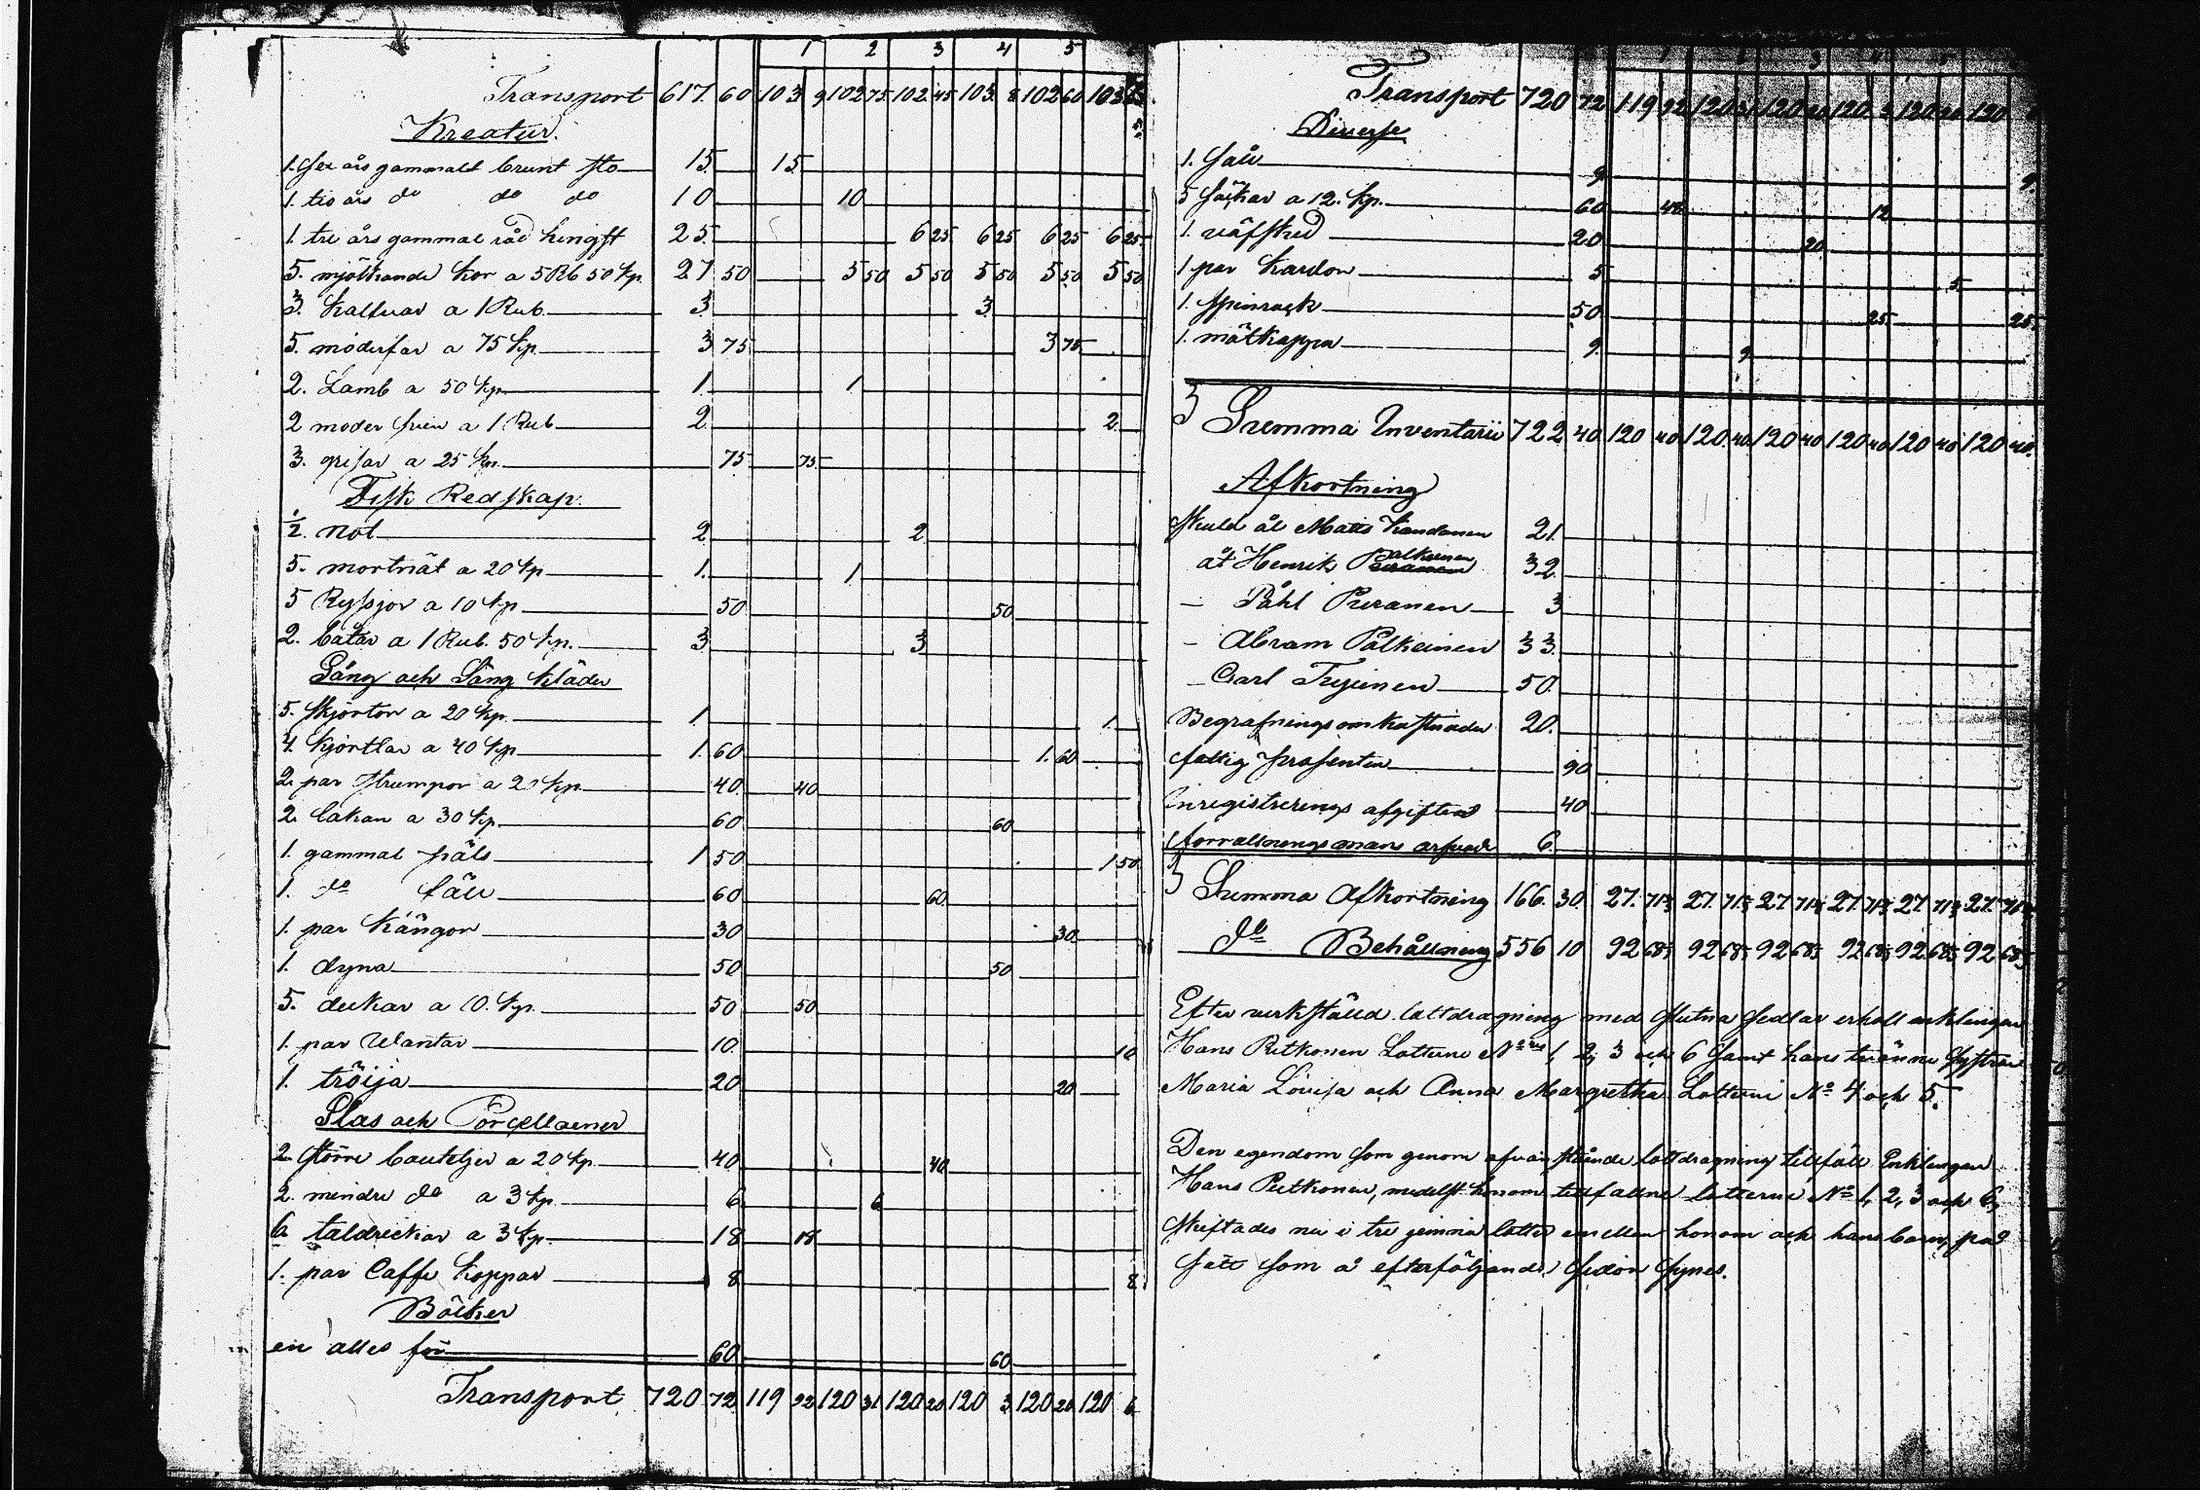 1 2 3 4 5
Transport 617. 60 103 9 102 75 102 45 103 8 102 60 103
Kreatur.
1. sex års gammalt brunt sto 15. 15
1. tio års do do do 10 10
1. tre års gammal råd hingst 25. 6 25 6 25 6 25 6 25
5. mjölkande kor a 5 Rb 50 kp. 27 50 5 50 5 50 5 50 5 50 5 50
3. kalfvar a 1 Rub. 3 3
5. moderfår a 75 kp 3 75 3 75
2. Lamb a 50 kp 1. 1
2 moder svin a 1 Rub 2 2
3. grisar a 25 kp. 75 75
Fisk Redskap.
1/2 not 2 2
5. mortnät a 20 kp 1. 1
5 Ryssjor a 10 kp 50 50
2. båtar a 1 Rub. 50 kp. 3 3
Gång och Säng kläder
5. skjortor a 20 kp. 1 1
4. kjortlar a 40 kp 1. 60 1. 60
2. par strumpor a 20 kp 40. 40
2 lakan a 30 kp. 60 60
1. gammal päls 1 50 1 50
1. do fäll 60 60
1. par kängor 30 30
1. dyna 50 50
5. dukar a 10. kp. 50 50
1. par Wantar 10. 10
1. tröija 20 20
Glas och Porcellainer
2. större bouteljer a 20 kp 40 40
2. mindre do a 3 kp. 6 6
6 taldrickar a 3 kp. 18 18
1. par Caffe koppar 8 8
Böcker
en alles för 60 60
Transport 720 72 119 92 120 31 120 20 120 3 120 20 120 6
Transport 720 72 119 92 120 31 120 20 120 3 120 20 120
Diverse
1. Såll 9 9.
5 säckar a 12. kp. 60 48 12
1. väfsked 20 20
1 par kardor 5 5
1. spinrock 50 25 25
1. mätkappa 9. 9
Summa Inventarii 722 40 120 40 120 40 120 40 120 40 120 40 120 40.
Afkortning
Skuld åt Matts 21.
åt Henrik 32
- Påhl Puranen 3
- Abram Pålkeinen 33.
- Carl 50.
Begrafnings omkostnader 20.
fattig prosenten 90
Inregistrerings afgiften 40
förvaltningsmans arfvode 6.
Summa Afkortning 166. 30. 27. 71 2/3 27. 71 2/3 27 71 2/3 27. 71 2/3 27 71 2/3 27.
do Behållning 556 10 92 68 1/3 92 68 1/3 92 68 1/3 92 68 1/3 92 68 1/3 92 68 1/3
Efter verkställd lottdragning med slutna sedlar erholl enklingen
Hans Putkonen Lotterne No 1, 2, 3 och 6 samt hans tvänne systrar
Maria Lovisa och Anna Margretha Lotterne No 4 och 5.
Den egendom som genom ofvanstående lottdragning tillföll Enklingen
Hans Putkonen, medelst honom tillfallne lotterne No 1, 2, 3 och 6,
skiftades nu i tre jemna lotter emellan honom och hans barn, på
sätt som å efterföljande sidor synes.